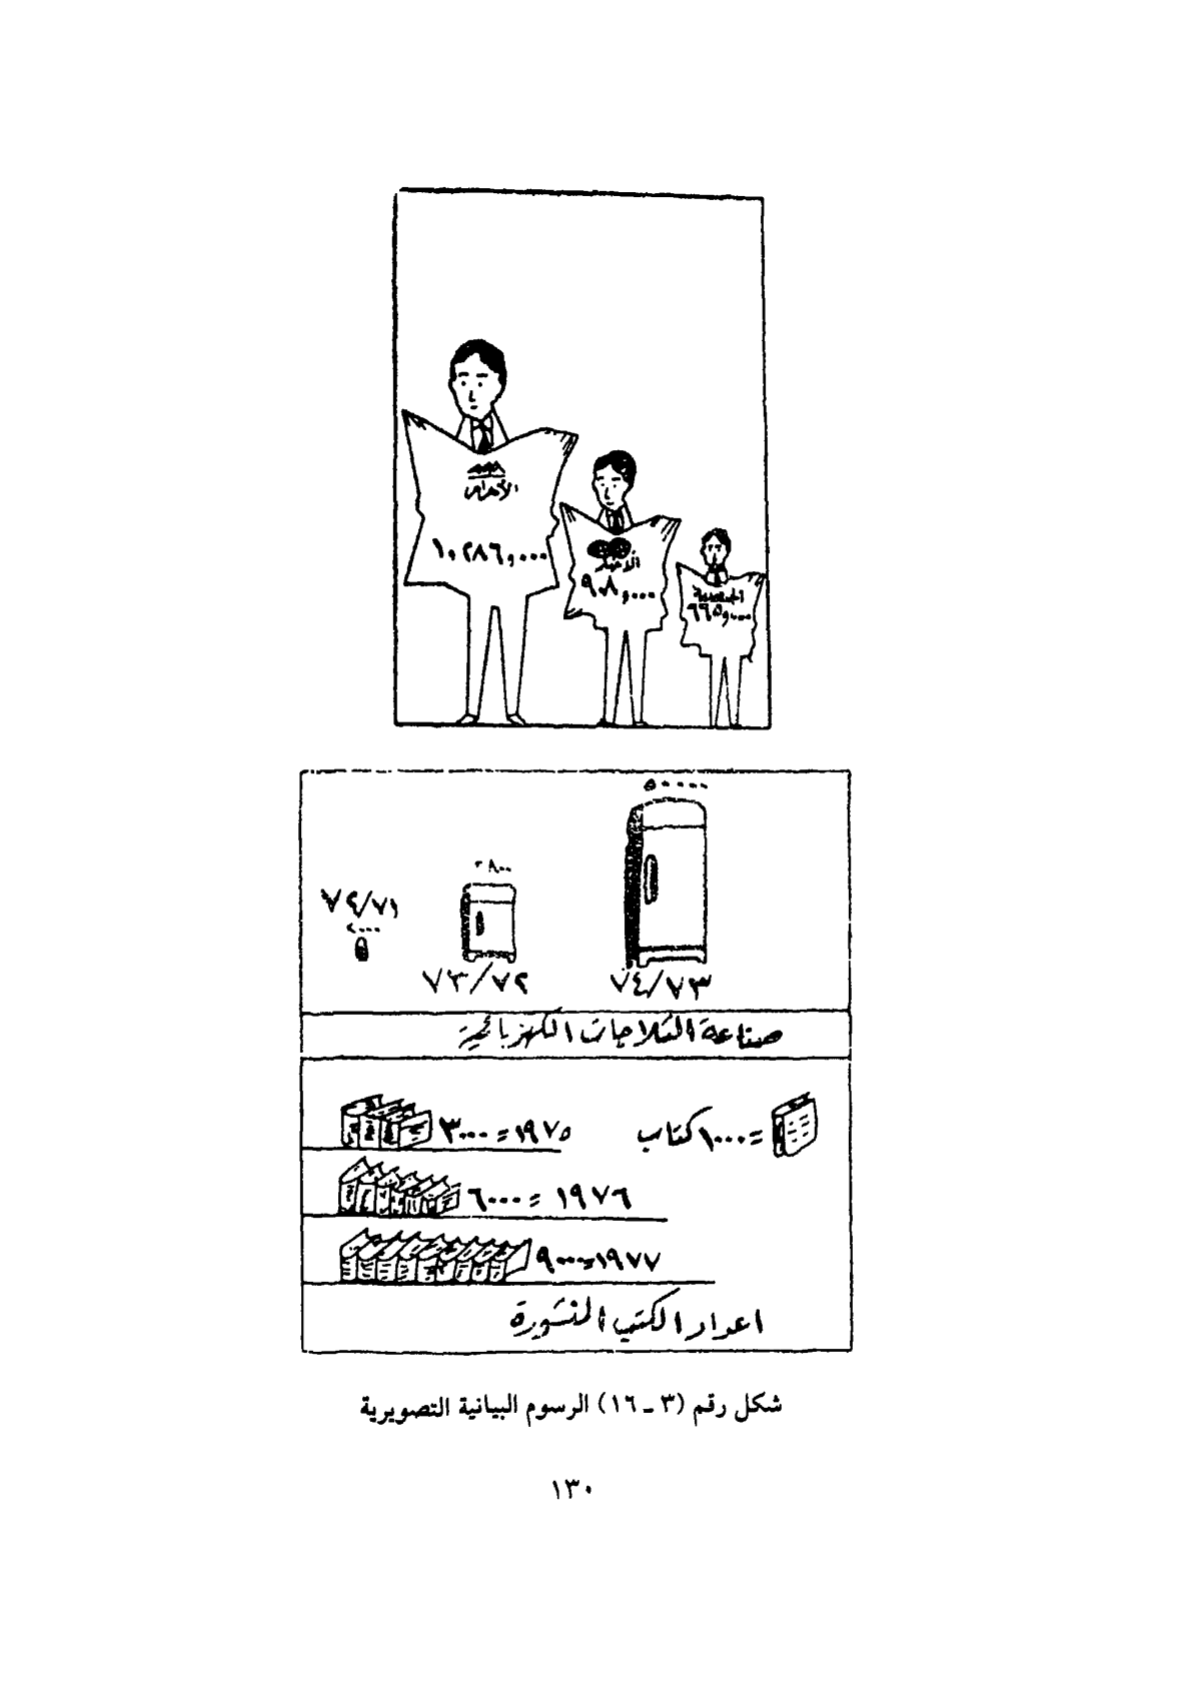 الأهرام
١٠٢٨٦,٠٠٠
الأخبار
٩٠٨,٠٠٠
٦٦٥,٠٠٠
٥٠٠٠٠
٨٠٠
٧٢/٧١
٢٠٠٠
٧٣/٧٢
٧٤/٧٣
صناعة الثلاجات الكهربائية
= ١٠٠٠ كتاب
١٩٧٥ = ٣٠٠٠
١٩٧٦ = ٦٠٠٠
١٩٧٧ = ٩٠٠٠
اعداد الكتب المنشورة
شكل رقم (٣ ـ ١٦) الرسوم البيانية التصويرية
١٣٠